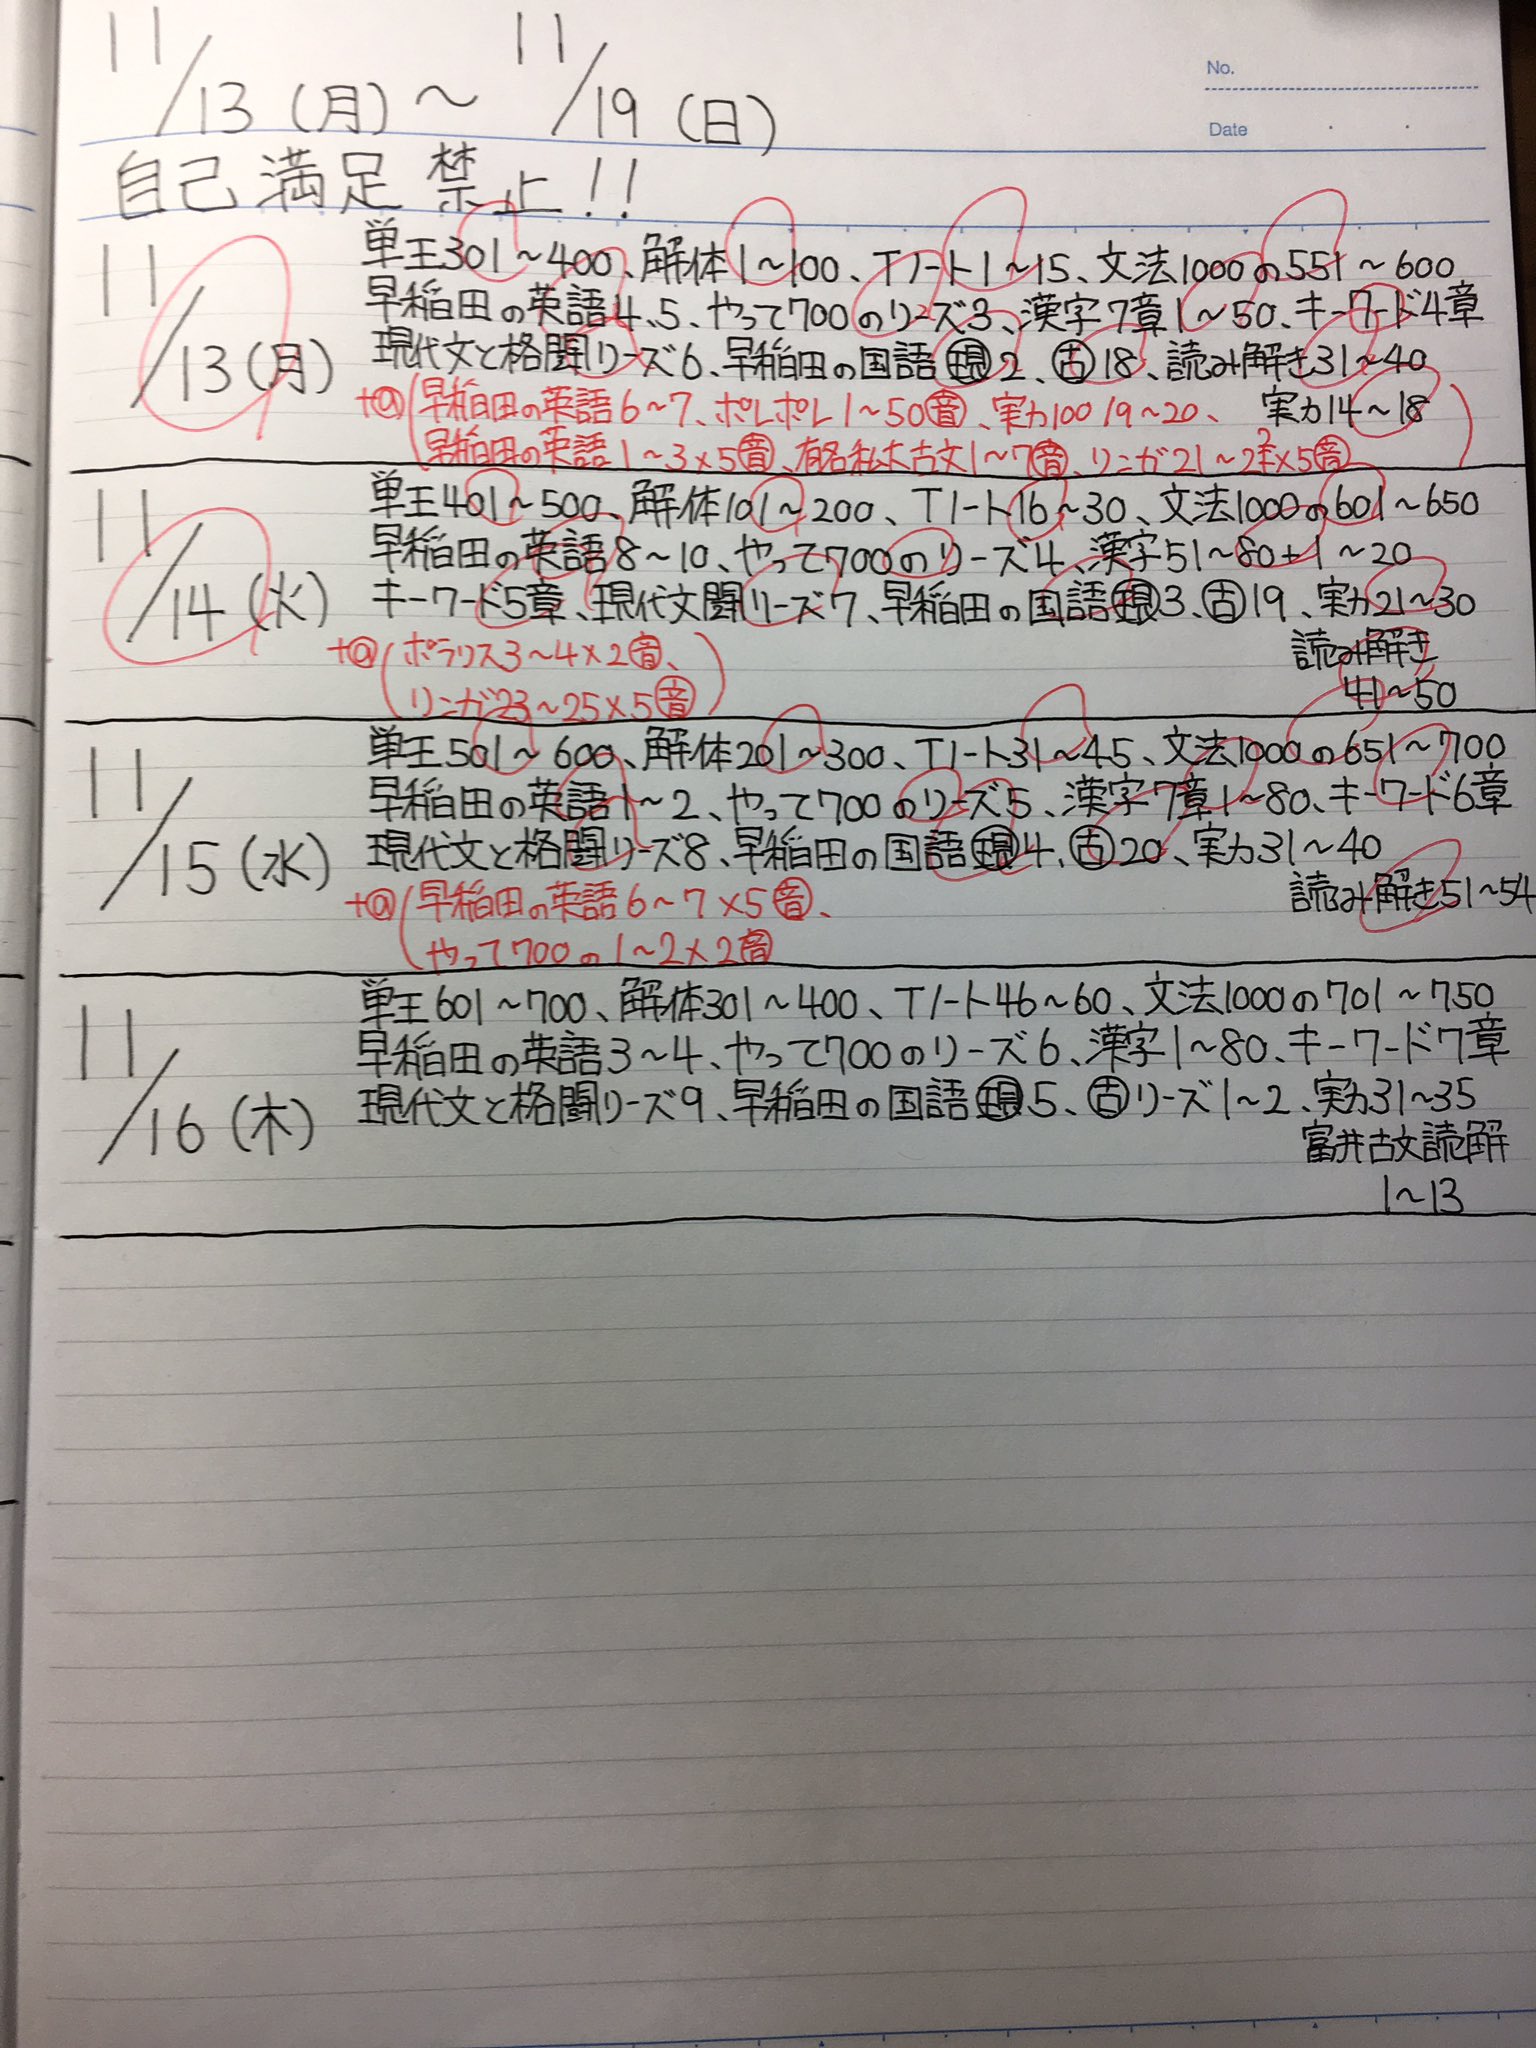 No.
Date
11/13（月）〜11/19（日）
自己満足禁止!!
11/13（月）
単王301〜400、解体1〜100、Tノート1〜15、文法1000の551〜600
早稲田の英語4、5、やって700のリーズ3、漢字7章1〜50、キーワード4章
現代文と格闘リーズ6、早稲田の国語㊝2、㊁18、読み解き31〜40
+@(早稲田の英語6〜7、ポレポレ1〜50音、実力100 19〜20、 実力14〜18
早稲田の英語1〜3×5音、有名私大古文1〜7音、リンガ21〜22×5音)
11/14（火）
単王401〜500、解体101〜200、Tノート16〜30、文法1000の601〜650
早稲田の英語8〜10、やって700のリーズ4、漢字51〜80+1〜20
キーワード5章、現代文闘リーズ7、早稲田の国語現3、古19、実力21〜30
読み解き
41〜50
+@(ポラリス3〜4×2音、
リンガ23〜25×5音)
11/15（水）
単王501〜600、解体201〜300、Tノート31〜45、文法1000の651〜700
早稲田の英語1〜2、やって700のリーズ5、漢字7章1〜80、キーワード6章
現代文と格闘リーズ8、早稲田の国語現4、古20、実力31〜40
読み解き51〜54
+@(早稲田の英語6〜7×5音、
やって700の1〜2×2音
11/16（木）
単王601〜700、解体301〜400、Tノート46〜60、文法1000の701〜750
早稲田の英語3〜4、やって700のリーズ6、漢字1〜80、キーワード7章
現代文と格闘リーズ9、早稲田の国語現5、古リーズ1〜2、実力31〜35
富井古文読解
1〜13